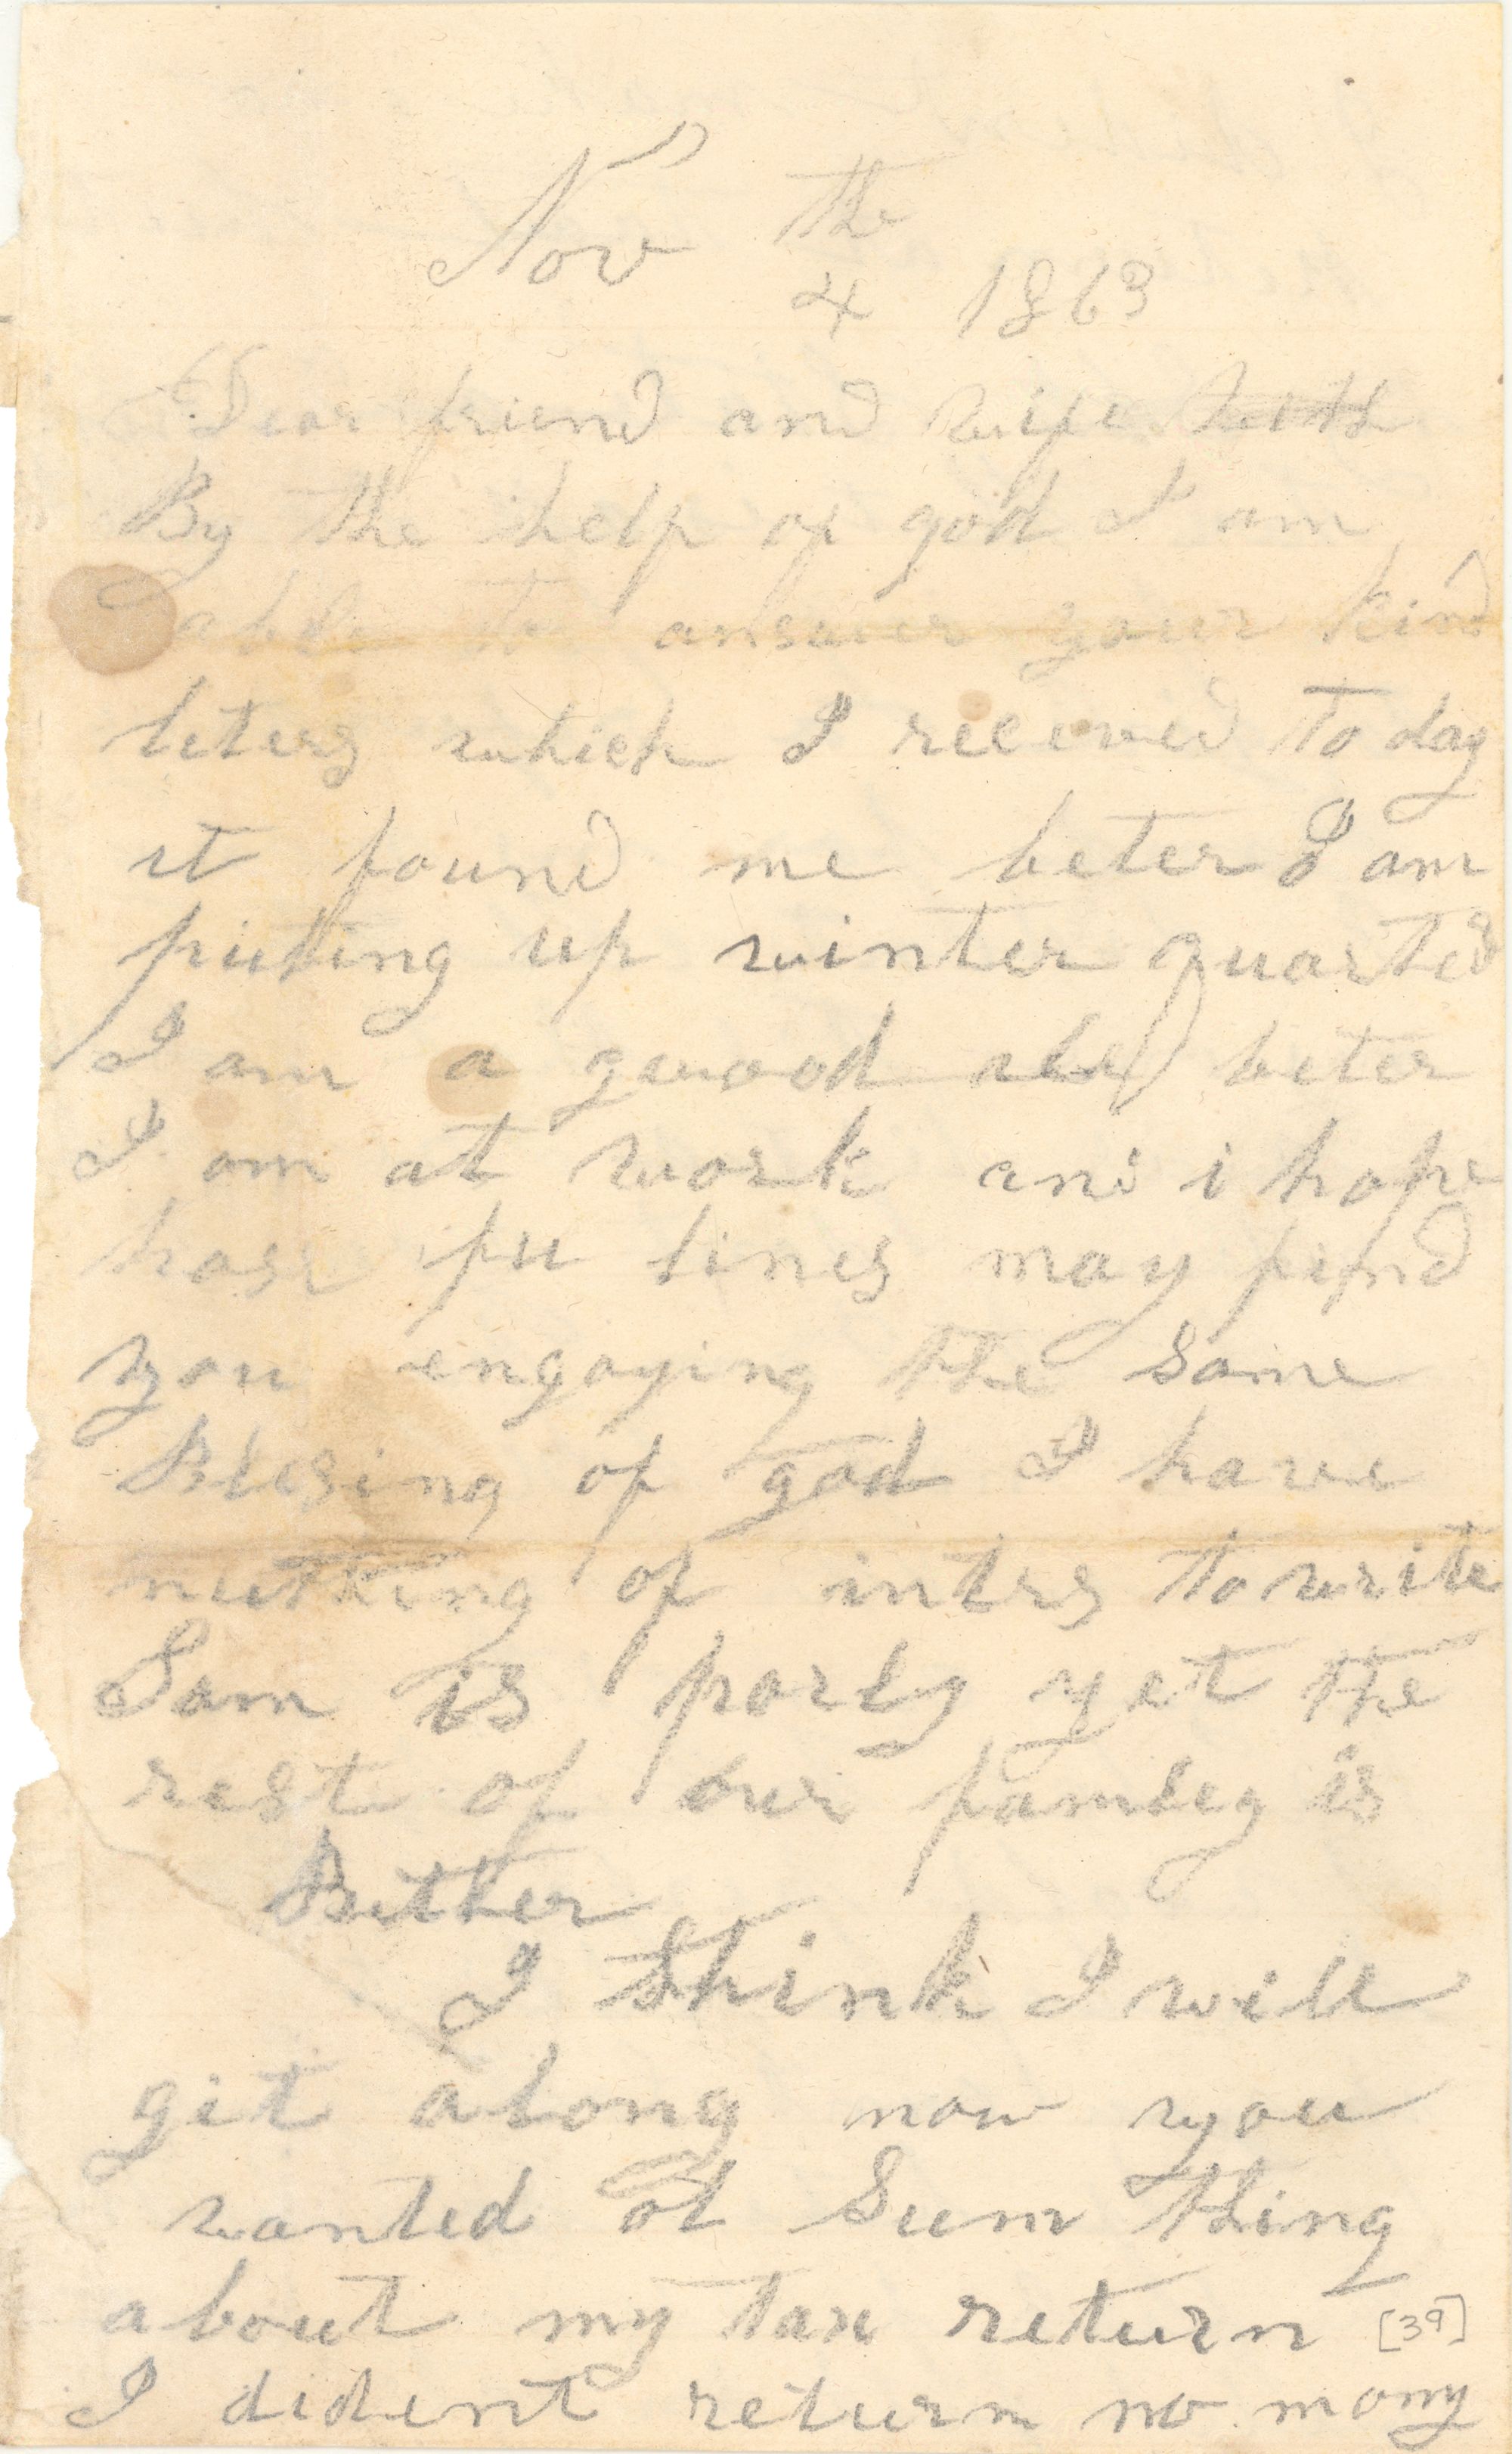 Nov the
4 1863
Dear friend and wife
By the help of god I am
able to answer your kind
leters which I receved To day
it found me beter I am
puting up winter quarters
I am a gwood beter
I am at work and i hope
fu lines may find
you engoying the same
Blesing of god I have
nuthing of intrs to write
Sam is porly yet the
rest of our famley is
Bether
I think I will
git along now you
wanted sum thing
about my tax return [39]
I dident return no mony